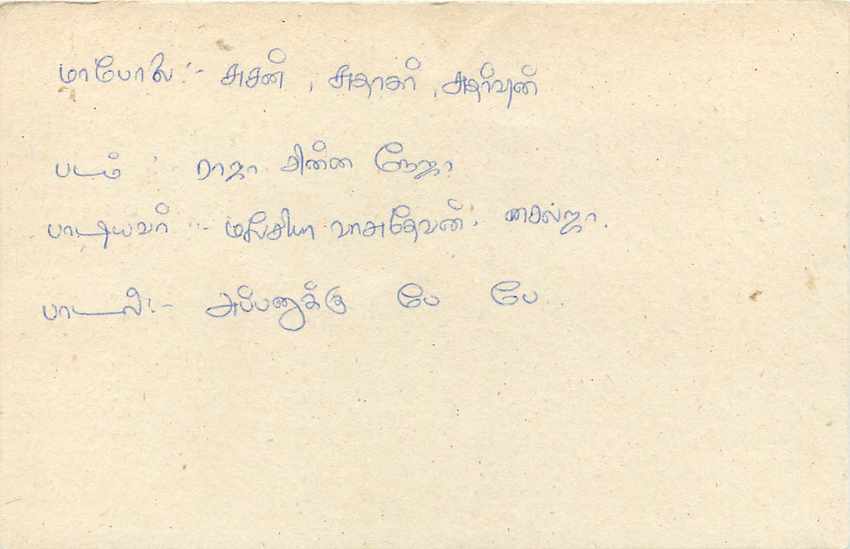 மாபோல :- சுசன் , சுதாகர் , அதர்வன்
படம் : ராஜா சின்ன ரோஜா
பாடியவர் :- மலேசியா வாசுதேவன், சைலஜா.
பாடல் :- அப்பனுக்கு பே பே